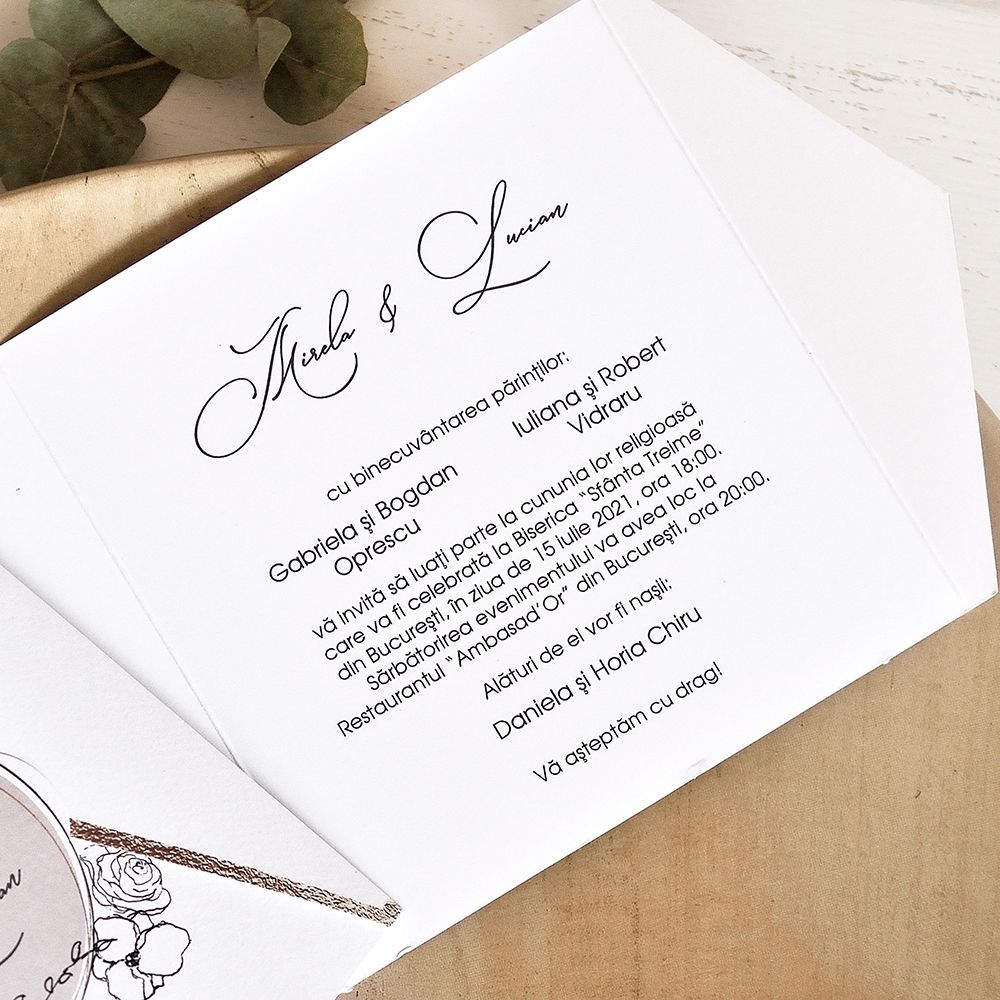 Mirela & Lucian
cu binecuvântarea părinţilor:
Gabriela şi Bogdan
Oprescu
Iuliana şi Robert
Vidraru
vă invită să luaţi parte la cununia lor religioasă
care va fi celebrată la Biserica “Sfânta Treime”
din Bucureşti, în ziua de 15 iulie 2021, ora 18:00.
Sărbătorirea evenimentului va avea loc la
Restaurantul “Ambasad’Or” din Bucureşti, ora 20:00.
Alături de ei vor fi naşii:
Daniela şi Horia Chiru
Vă aşteptăm cu drag!